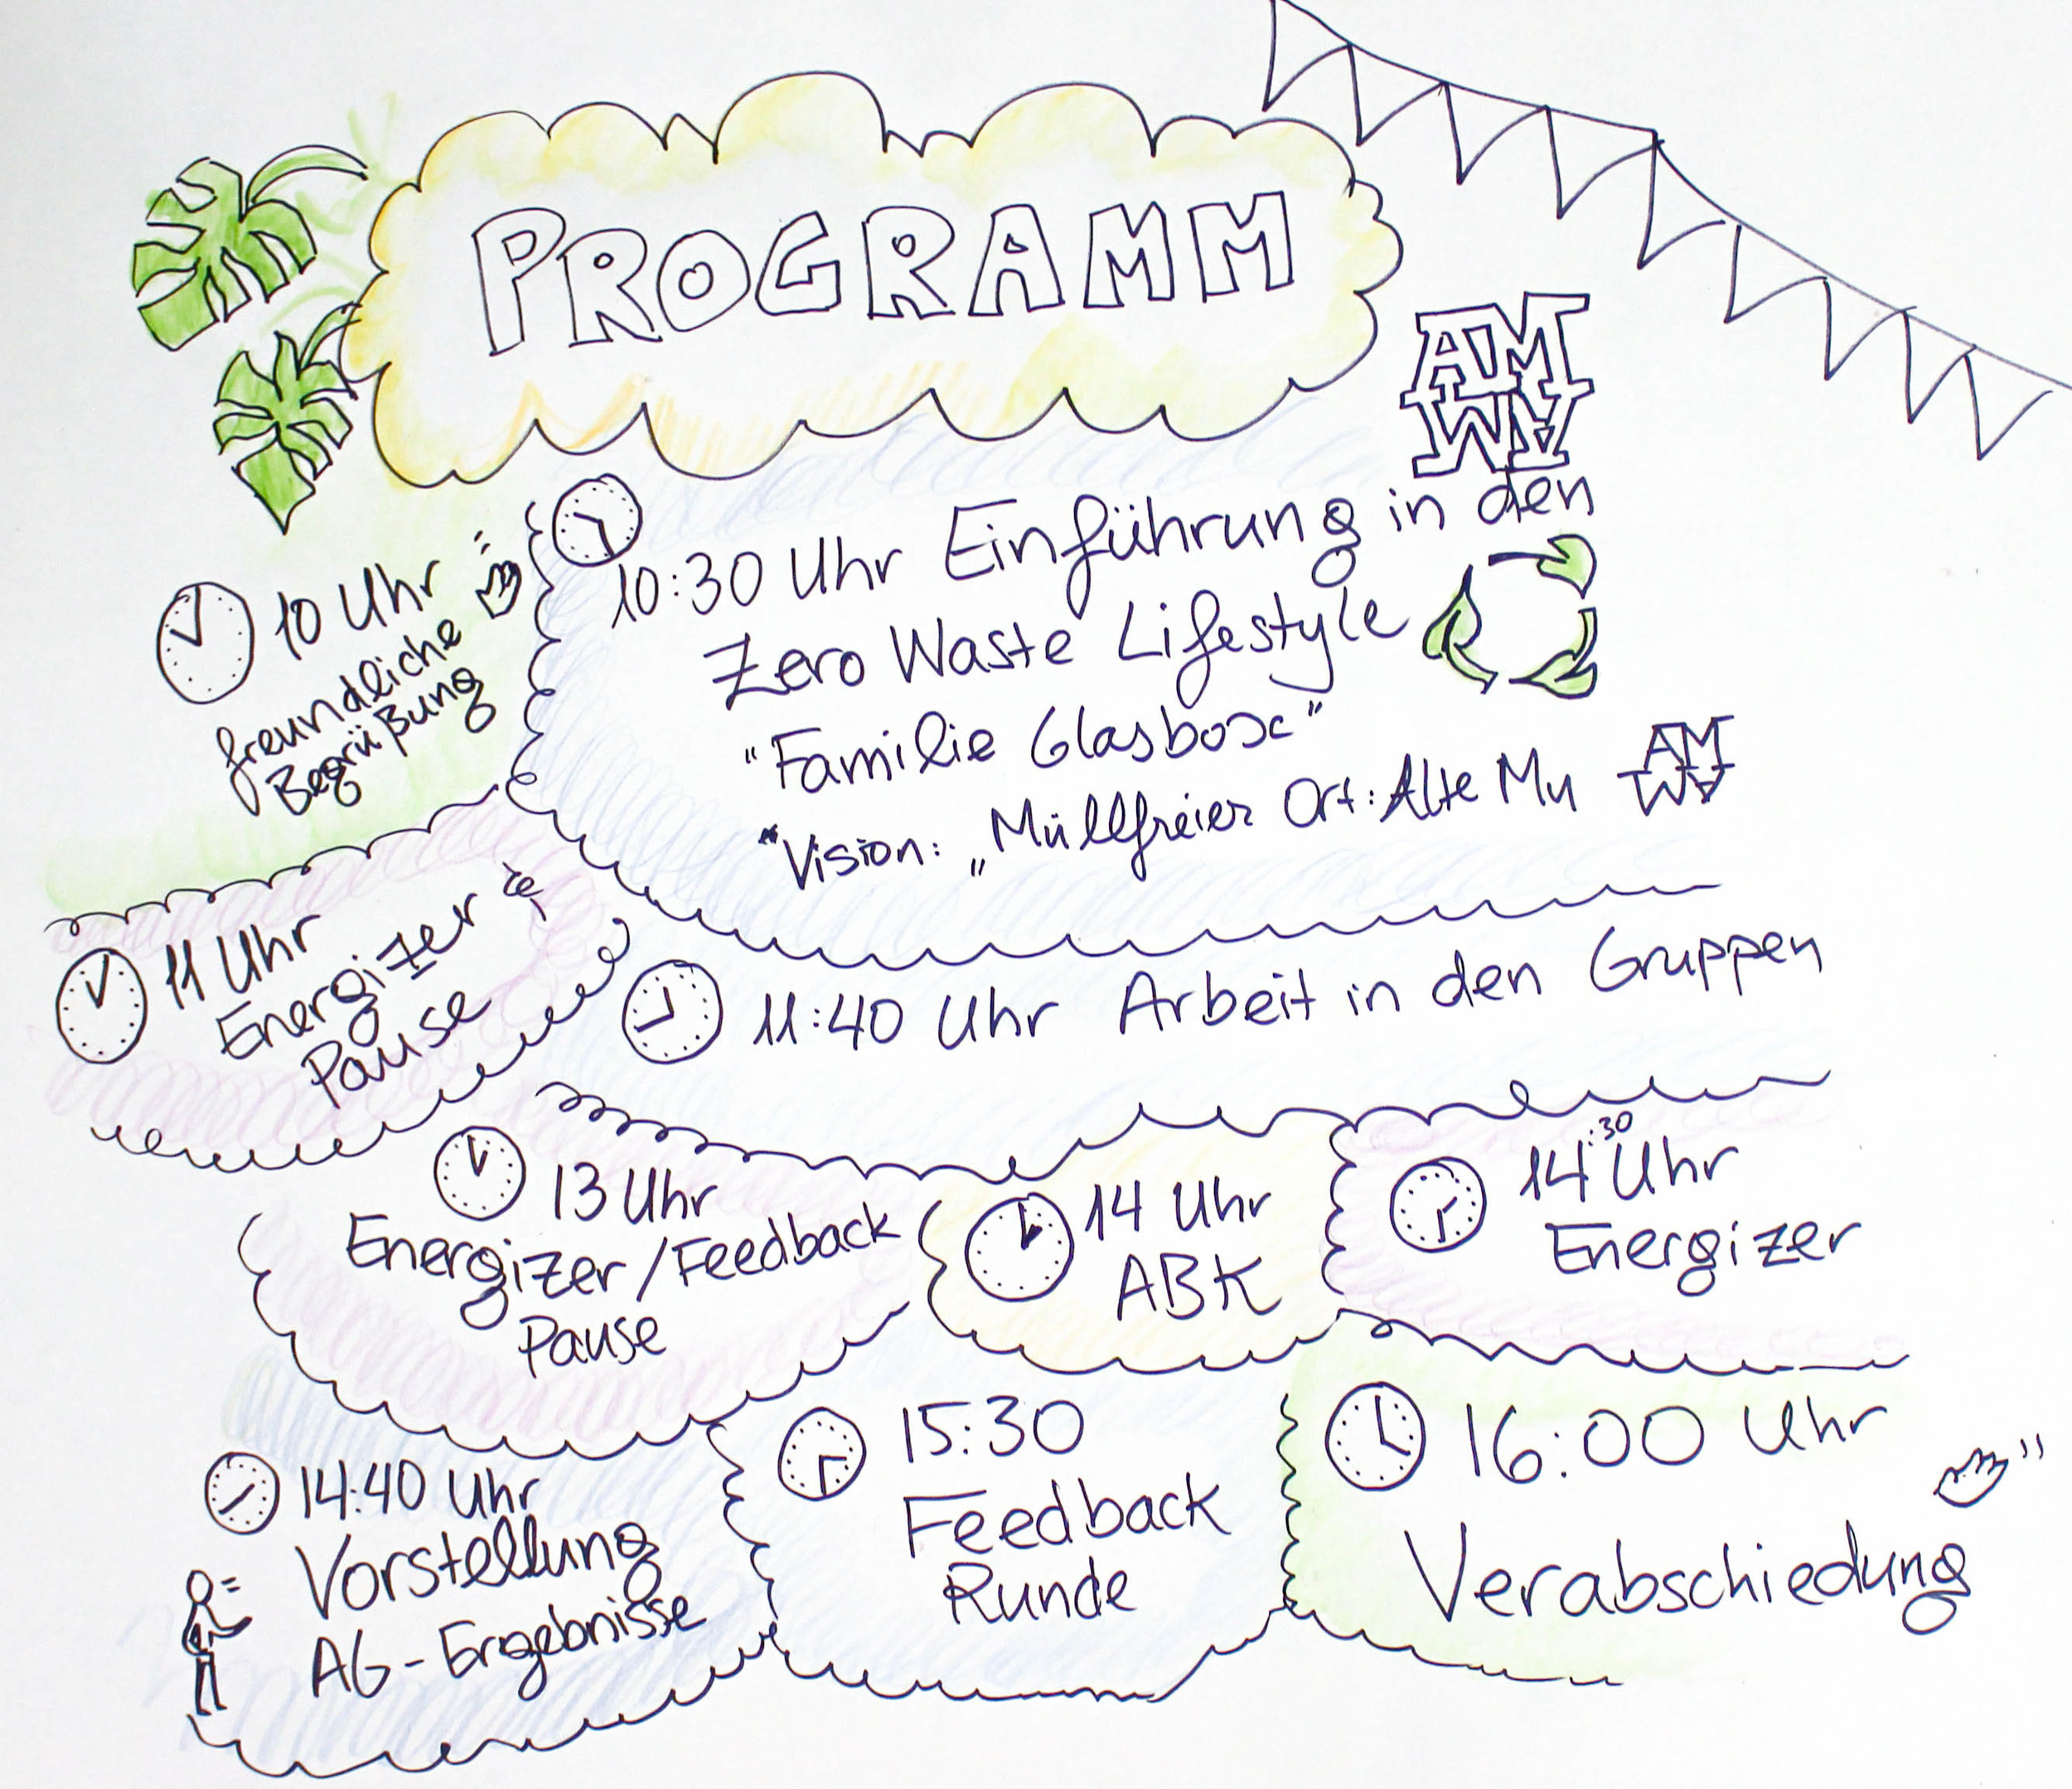 PROGRAMM
AM
AM
10 Uhr
freundliche
Begrüßung
10:30 Uhr Einführung in den
Zero Waste Lifestyle
"Familie Glasbox"
*Vision: „Müllfreier Ort: Alte Mu
AM
AM
11 Uhr
Energizer
Pause
11:40 Uhr Arbeit in den Gruppen
13 Uhr
Energizer/Feedback
Pause
14 Uhr
ABK
14:30 Uhr
Energizer
14:40 Uhr
Vorstellung
AG-Ergebnisse
15:30
Feedback
Runde
16:00 Uhr
Verabschiedung